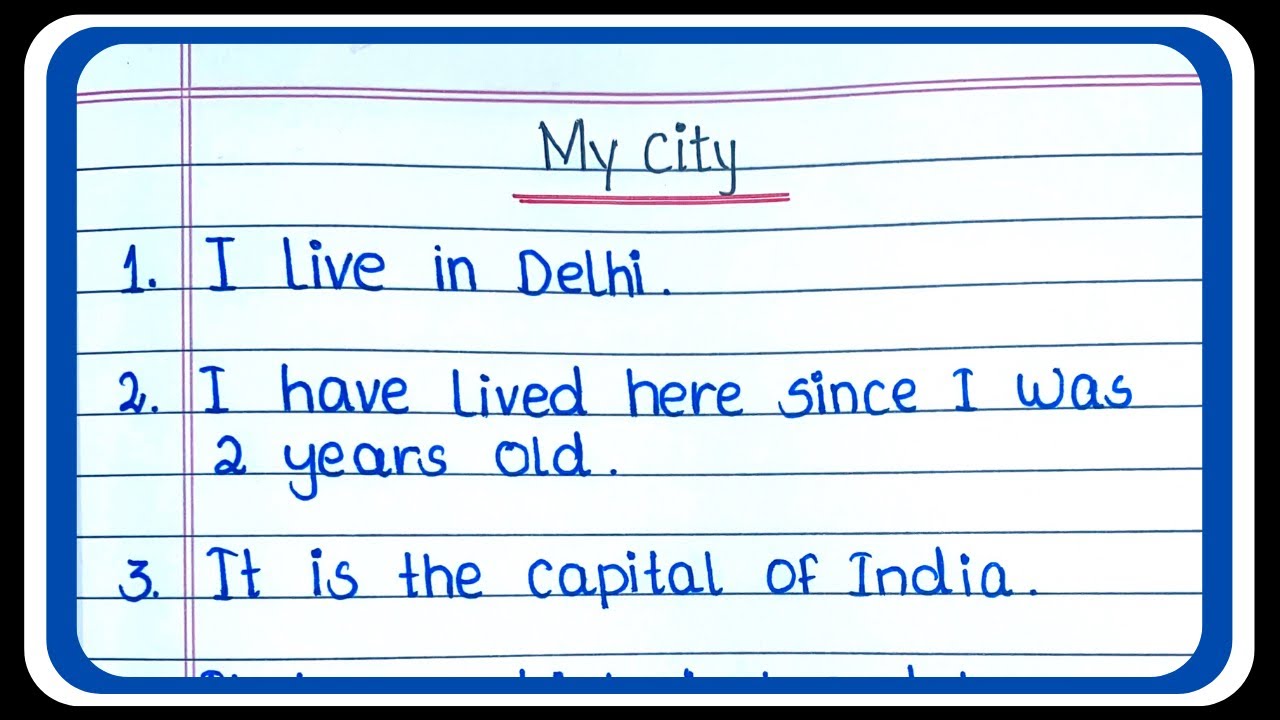 My city
1. I live in Delhi.
2. I have lived here since I was
2 years old.
3. It is the capital of India.